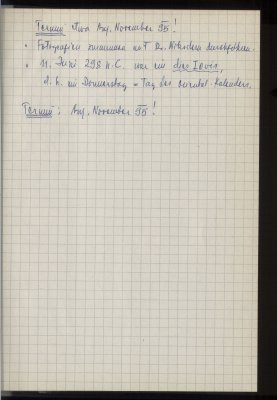 Termin etwa Anf. November 95!
• Fotografien zusammen mit Dr. durchgehen.
• 11. Juni 298 n.C. war ein dies Iovis,
d.h. ein Donnerstag = Tag des Kalenders.
Termin: Anf. November 95!